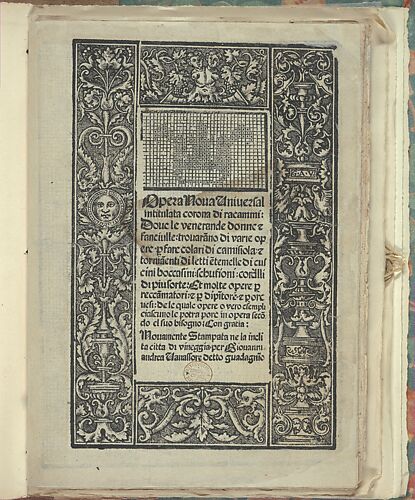 Opera Noua Uniuersal
intitulata corona di racammi:
Doue le venerande donne &
fanciulle: trouarāno di varie op
ere p fare colari di camisiola &
torniamenti di letti ētemelle di cus
cini boccasini: schufioni: cordlli
di piu sorte: Et molte opere p
reccāmatori: & p dipitore & por
uesi: de le quale opere o vero esempli
ciascuno le potra pore in opera secō
do el suo bisogno: Con gratia:
Nouamente Stampata ne la incli
ta citta di vineggia per Giouanni
andrea Uauassore detto guadagnīo